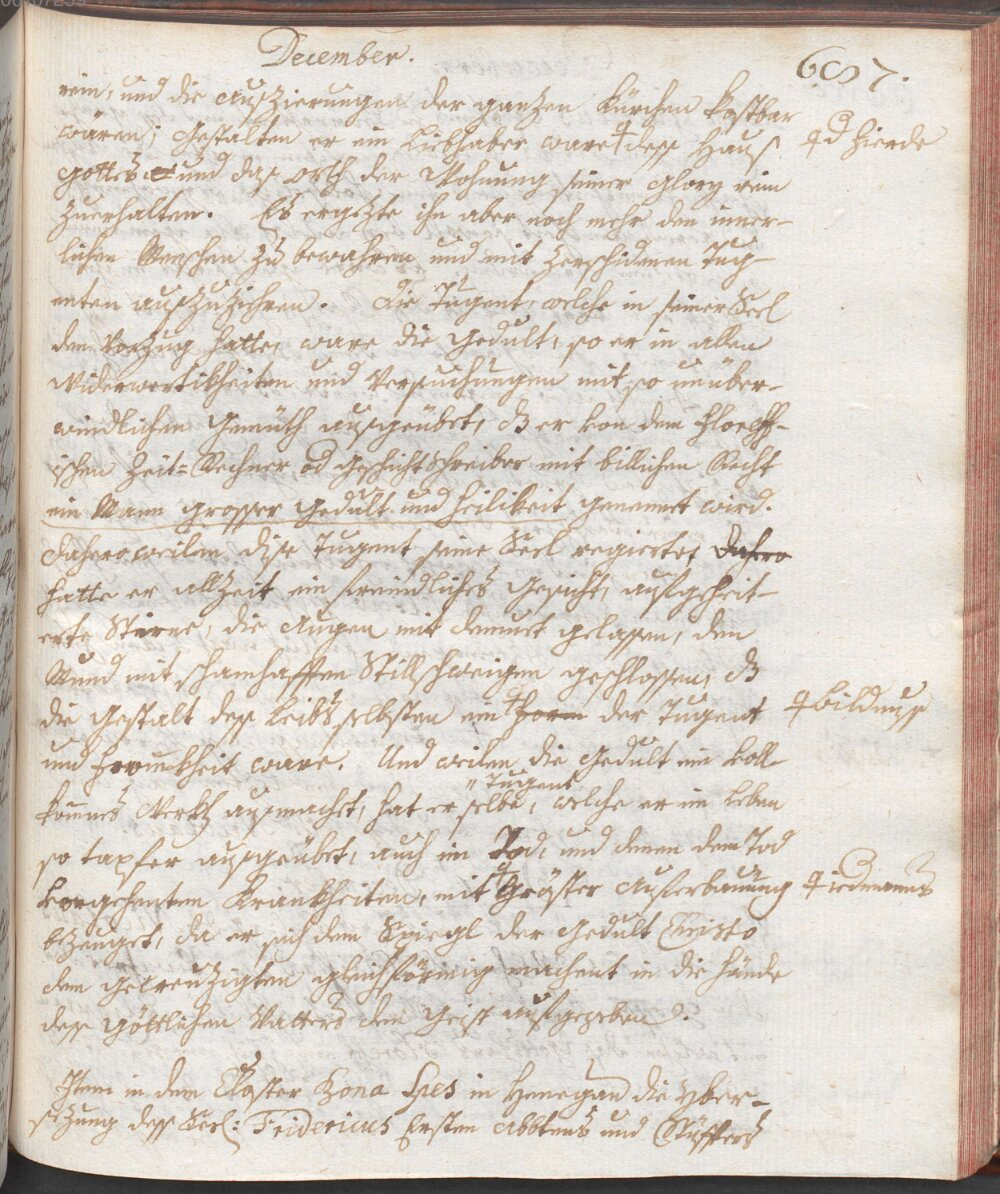 December. 607.
rein, und die auszierungen der gantzen Kürchen kostbar
wären; gestalten er ein Liebhaber ware ┼ dess Hauß ┼ d Zierde
gottes und das orth der Wohnung seiner glory rein
zuerhalten. Es ergezte ihn aber noch mehr den inner-
lichen Menschen zu bewahren und mit verschidenen Tug-
enten auszuziehren. Die Tugent, welche in seiner Seel
den Vorzug hatte, ware die Gedult, so er in allen
Widerwertikheiten und Versuchungen mit so unüber-
windlichen Gemüth ausgeübet, dß er von dem Floreff-
ischen Zeit-Rechner od Geschichtschreiber mit billichen Recht
ein Mann grosser Gedult und Heilikeit genennet wird.
Dahero weilen dise Tugent seine Seel regierte, dahero
hatte er allzeit ein freindliches Gesicht, aufgeheit-
erte Stirne, die Augen mit demuet gelassen, den
Mund mit schamhafften Stillschweigen geschlossen, dß
die Gestalt dess Leibs selbsten ein ┼ Form der Tugent ┼ bildnuss
und Fromkheit ware. Und weilen die Gedult ein voll-
komes Werkh ausmachet, hat er selbe, " Tugent welche er im Leben
so tapfer ausgeübet, auch im Tod, und denen dem Tod
vorgehenten Krankheiten, mit ┼ gröster Auferbauung ┼ iedermanns
bezeuget, da er sich dem Spiegl der Gedult Christo
dem gecreuzigten gleichförmig machent in die Hände
dess göttlichen Vatters den Geist aufgegeben.
Item in dem Closter Bona Spes in Henegau die yber-
sezung dess Seel: Fridericus Ersten Abbtens und Stüffters